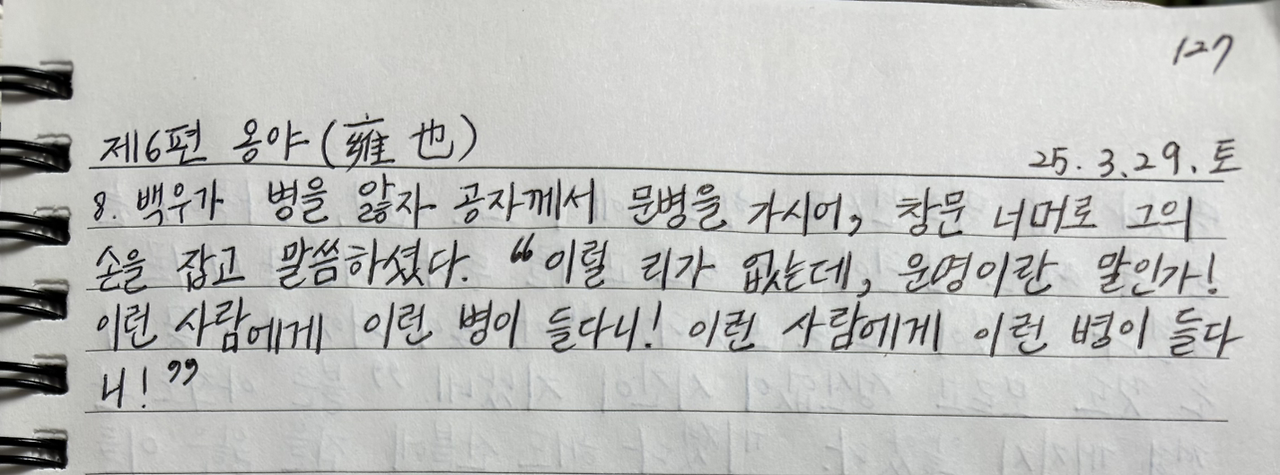 127
제6편 옹야(雍也)
25.3.29.토
8. 백우가 병을 앓자 공자께서 문병을 가시어, 창문 너머로 그의
손을 잡고 말씀하셨다. “이럴 리가 없는데, 운명이란 말인가!
이런 사람에게 이런 병이 들다니! 이런 사람에게 이런 병이 들다
니!”